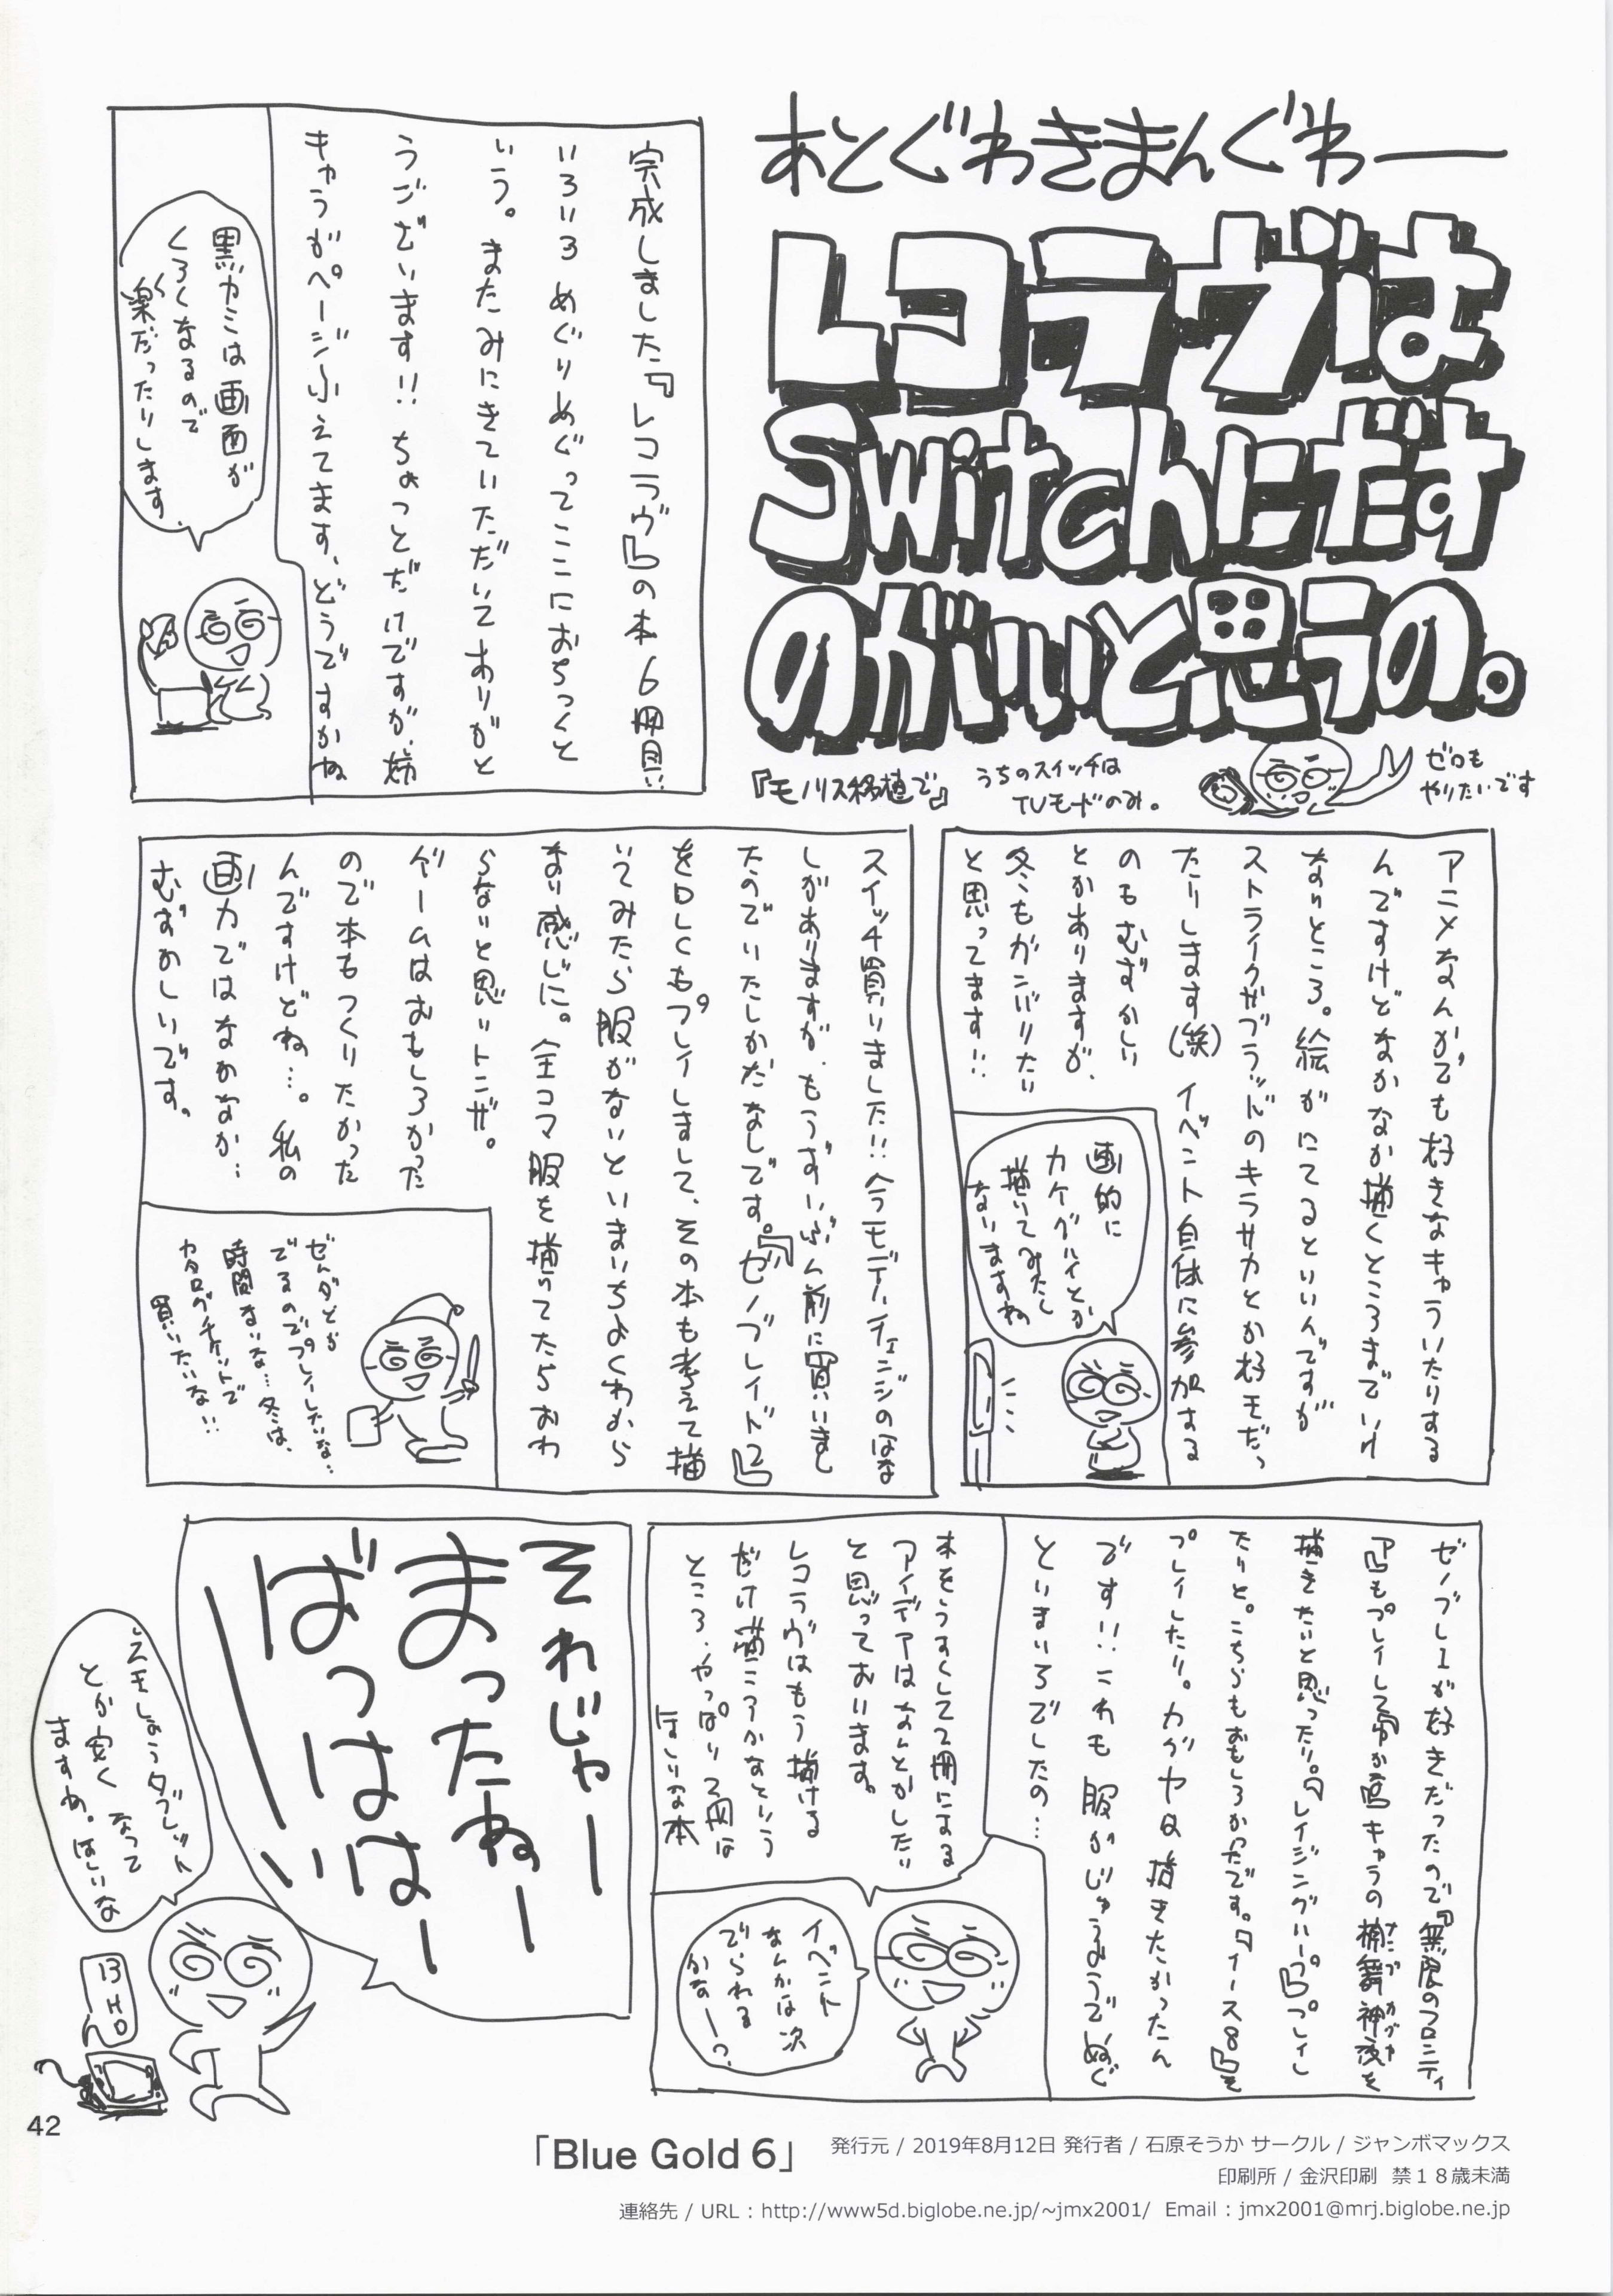 あとぐわきまんぐわー
レコラヴは
Switchにだす
のがいいと思うの。
『モノリス移植で』
うちのスイッチは
TVモードのみ。
ゼロも
やりたいです
完成しました『レコラヴ』の本6冊目い
いろいろめぐりめぐってここにおちつくと
いう。またみにきていただいてありがと
うございます!!ちょっとだけですが、姉
キャラがページふえてます、どうですかね
黒カミは画面が
くろくなるので
楽だったりします。
アニメなんかでも好きなキャラいたりする
んですけどなかなか描くところまでいけ
ないところ。絵がにてるといいんですが
ストライクザブラッドのキラサカとか好モだっ
たりします(笑)イベント自体に参加する
のもむずかしい
とかありますが、
冬もガンバりたい
と思ってます!!
画的に
カケグルイとか
描いてみたく
ないますね
スイッチ買いました!!今うモデルチェンジのはな
しがありますが、もうずいぶん前に買いまし
たのでいたしかたなしです。『ゼノブレイド2』
をDLCもプレイしまして、その本も考えて描
いてみたら服がないといまいちよくわから
ない感じに。全コマ服を描いてたらおわ
らないと思いトンザ。
ゲームはおもしろかった
ので本もつくりたかった
んですけどね…。私の
画力ではなかなか…
むずかしいです。
ゼルダとか
でるのでプレイしたいな…
時間ないな…冬は、
カタログチケットで
買いたいな!!
ゼノブレ1が好きだったので『無限のフロンティ
ア』もプレイして
キャラの楠舞神夜を
ナンブ カグヤ
描きたいと思ったり。『レイジングループ』プレイし
たりと。こちらもおもしろかったです。『イース8』を
プレイしたり。カグヤは描きたかったん
です!!これも服がじゅうようでぬぐ
といまいちでしたの…
本をうすくして2冊にする
アイデアはなんとかしたい
と思っております。
レコラヴはもう描ける
だけ描こうかなという
ところ、やっぱり2冊は
ほしいな本
イベント
なんかは次
でられる
かなー?
それじゃー
まったねー
ばっははー
ーい
とか安く なって
ますね。ほしいな
13
HD
42
「Blue Gold 6」
発行元 / 2019年8月12日 発行者 / 石原そうか サークル / ジャンボマックス
印刷所 / 金沢印刷 禁18歳未満
連絡先 / URL : http://www5d.biglobe.ne.jp/~jmx2001/ Email : jmx2001@mrj.biglobe.ne.jp